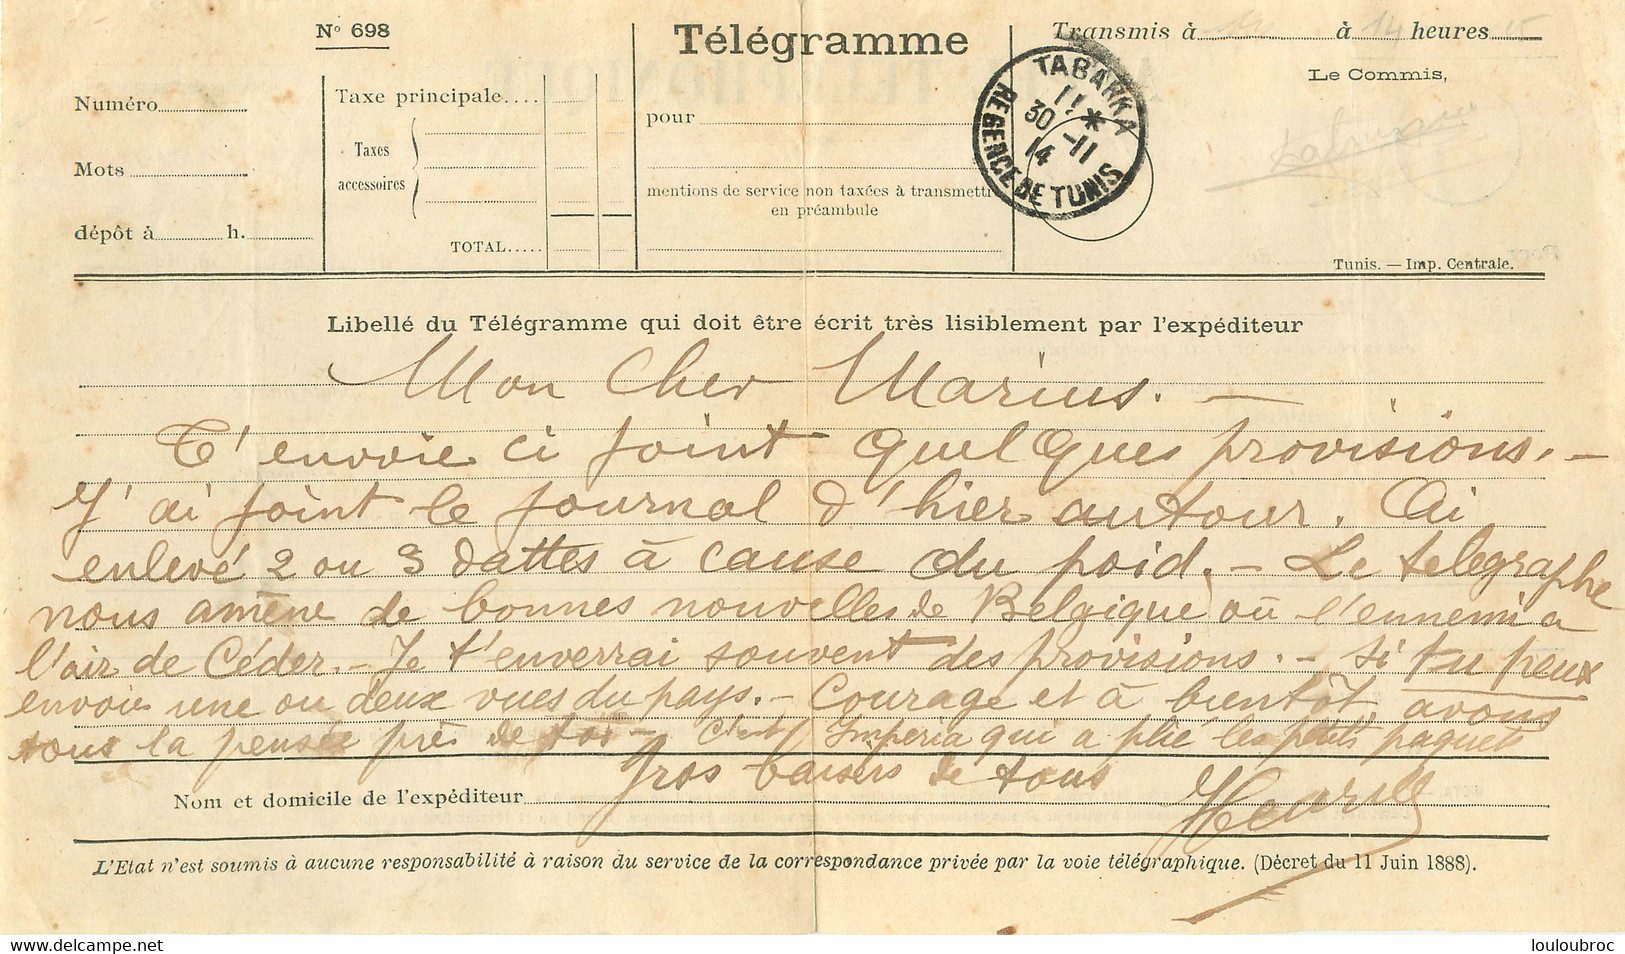 N° 698
Télégramme
Transmis à 14 à 14 heures 15
Le Commis,
Numéro
Mots
dépôt à h.
Taxe principale....
Taxes
accessoires
TOTAL.....
pour
mentions de service non taxées à transmettre
en préambule
TABARKA
11 *
30 -11
14
REGENCE DE TUNIS
Tunis. — Imp. Centrale.
Libellé du Télégramme qui doit être écrit très lisiblement par l'expéditeur
Mon Cher Marius. —
T'envoie ci joint quelques provisions. —
J'ai joint le journal d'hier autour. Ai
enlevé 2 ou 3 dattes à cause du poid. — Le telegraphe
nous amène de bonnes nouvelles de Belgique où l'ennemi a
l'air de Céder. — Je t'enverrai souvent des provisions. — Si tu peux
envoie une ou deux vues du pays. — Courage et à bientôt, avons
tous la pensée près de toi — C'est Impéria qui a plié les petits paquets
Gros baisers de tous
Nom et domicile de l'expéditeur
L'Etat n'est soumis à aucune responsabilité à raison du service de la correspondance privée par la voie télégraphique. (Décret du 11 Juin 1888).
louloubroc